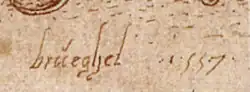 brűeghel 1557